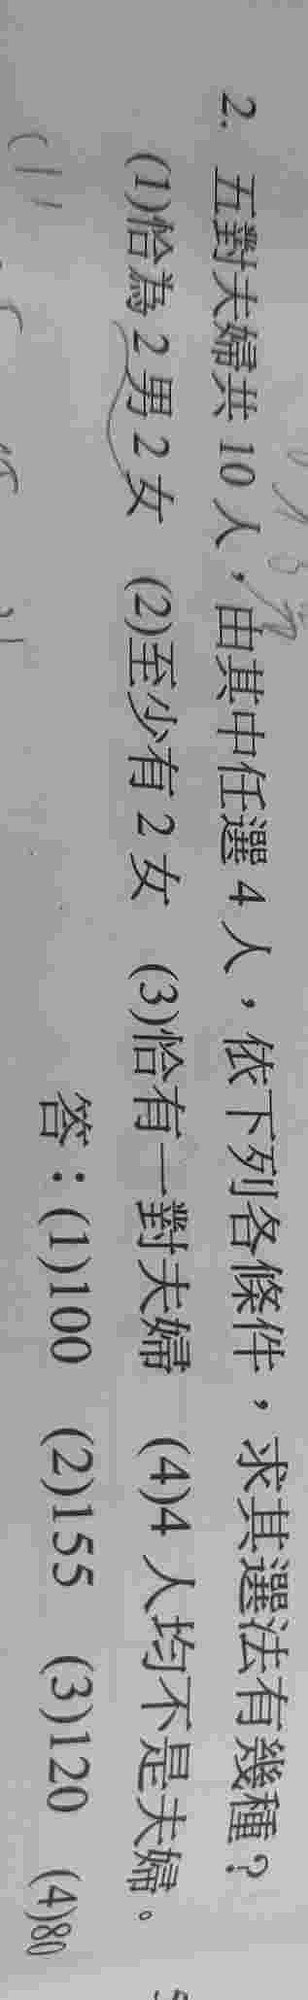 2. 五對夫婦共 10 人，由其中任選 4 人，依下列各條件，求其選法有幾種？
(1)恰為 2 男 2 女 (2)至少有 2 女 (3)恰有一對夫婦 (4)4 人均不是夫婦。
答：(1)100 (2)155 (3)120 (4)80
(1)